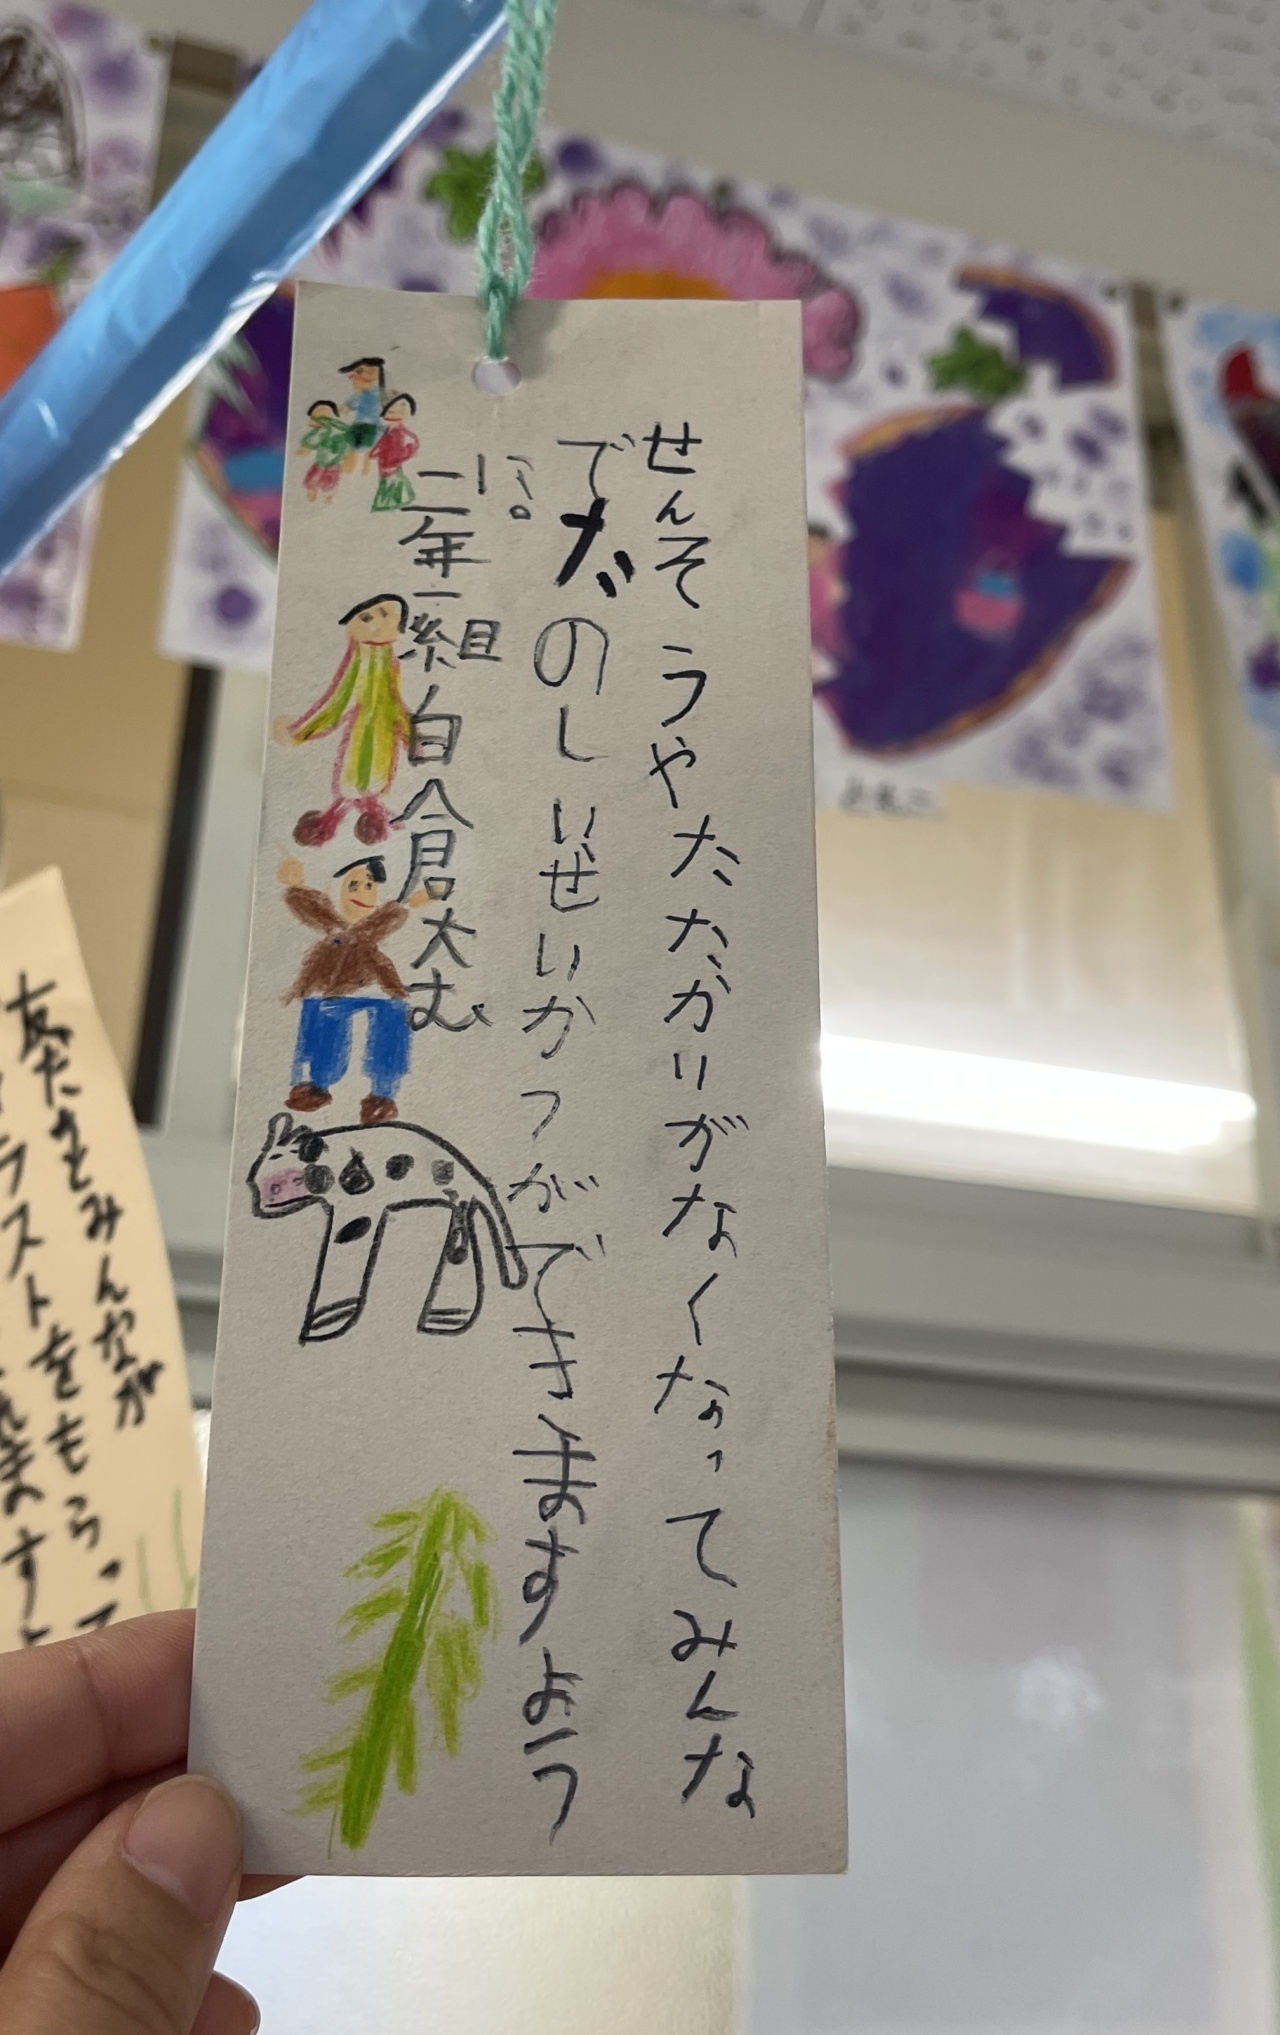 せんそうやたたかりがなくなってみんな
でだのしいせいかつができますよう
に。
二年一組白倉大む
友だちとみんなが
ラストをもらって
ますよ